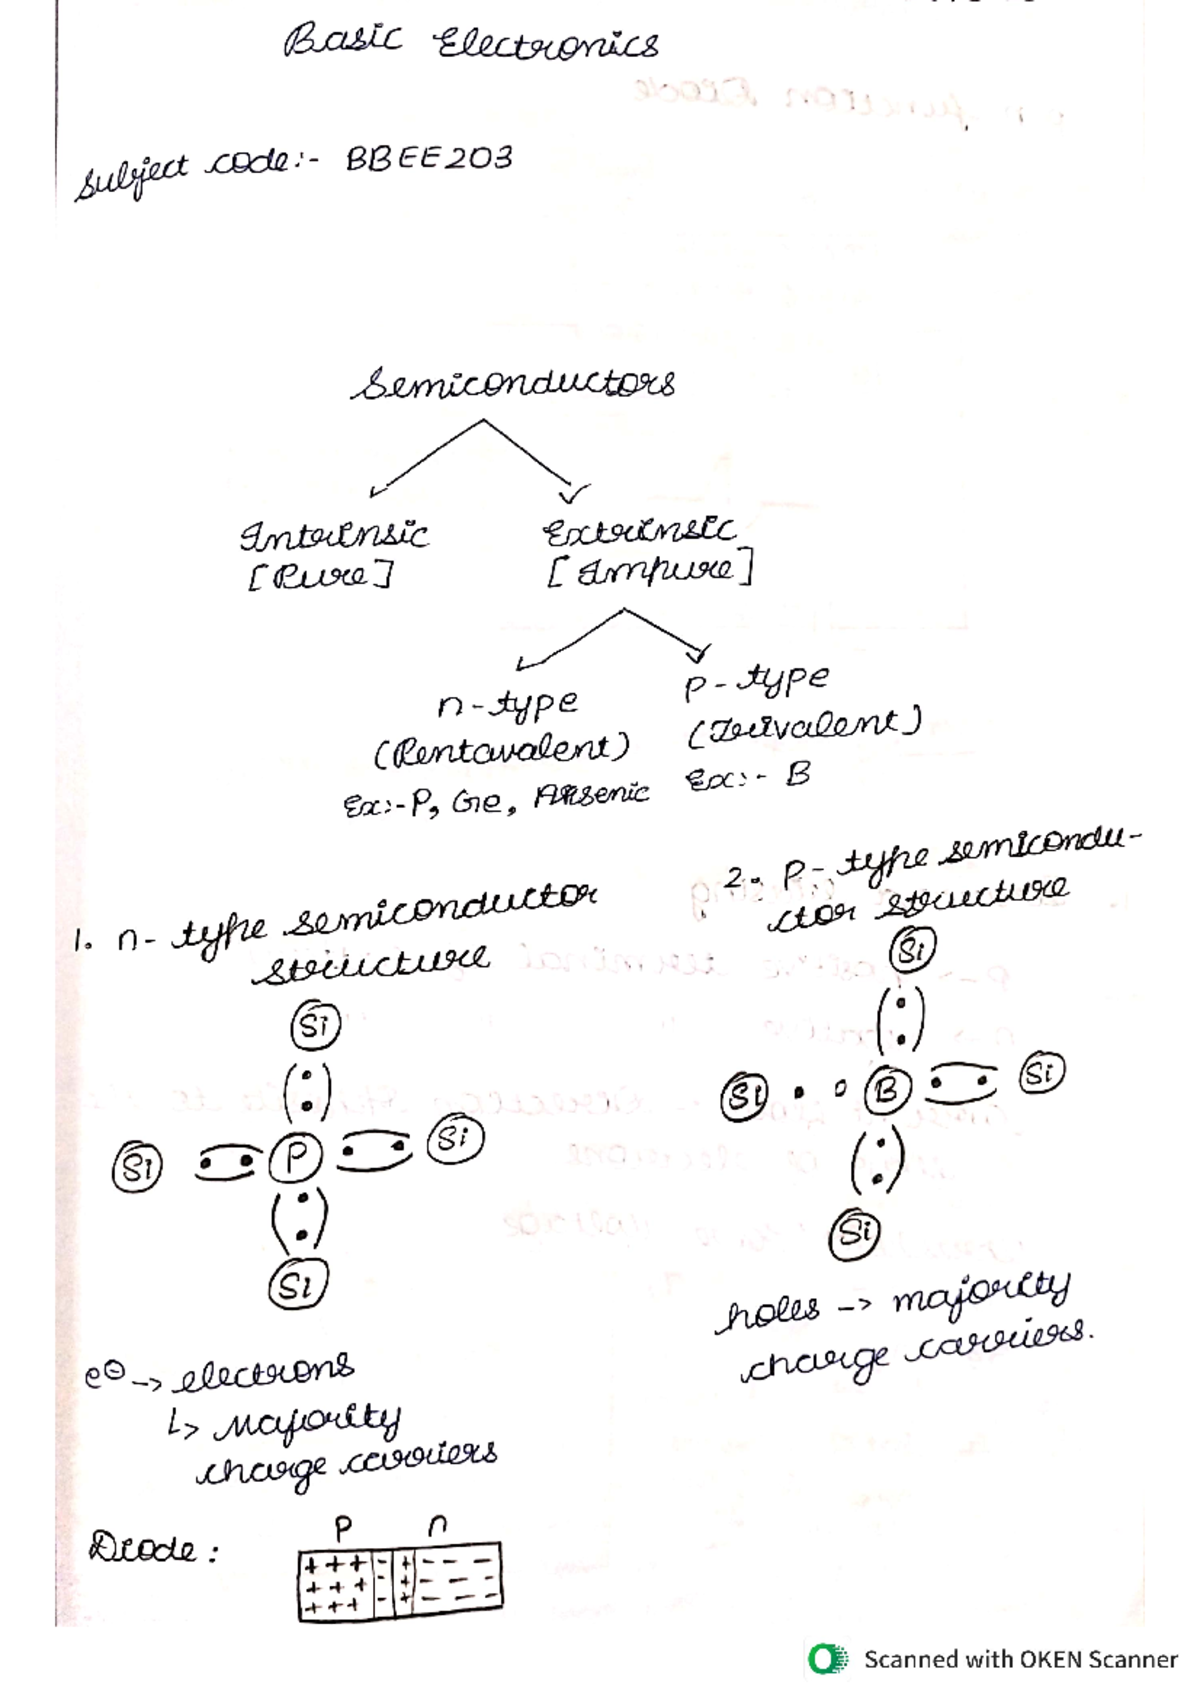 Basic Electronics
Subject code:- BBEE203
Semiconductors
Intrinsic
[Pure]
Extrinsic
[Impure]
n-type
(Pentavalent)
Ex:-P, Ge, Arsenic
P-type
(Trivalent)
Ex:- B
1. n-type semiconductor
structure
Si
Si
P
Si
Si
e⊖ -> electrons
↳ Majority
charge carriers
2. P-type semicondu-
ctor structure
Si
Si
B
Si
Si
holes -> majority
charge carriers.
Diode:
P n
+ + + - + - - -
+ + + - + - - -
+ + + - + - - -
Scanned with OKEN Scanner